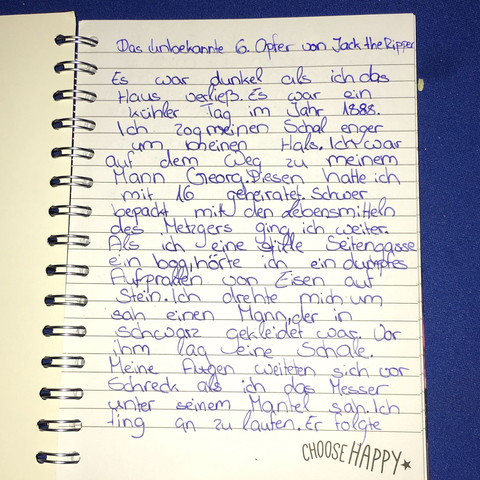 Das unbekannte 6. Opfer von Jack the Ripper
Es war dunkel als ich das
Haus verließ. Es war ein
kühler Tag im Jahr 1888.
Ich zog meinen Schal enger
um meinen Hals. Ich war
auf dem Weg zu meinem
Mann Georg. Diesen hatte ich
mit 16 geheiratet. Schwer
bepackt mit den Lebensmitteln
des Metzgers ging ich weiter.
Als ich eine stille Seitengasse
ein bog, hörte ich ein dumpfes
Aufprallen von Eisen auf
Stein. Ich drehte mich um
sah einen Mann, der in
schwarz gekleidet war. Vor
ihm lag eine Schale.
Meine Augen weiteten sich vor
Schreck als ich das Messer
unter seinem Mantel sah. Ich
fing an zu laufen. Er folgte
CHOOSE HAPPY